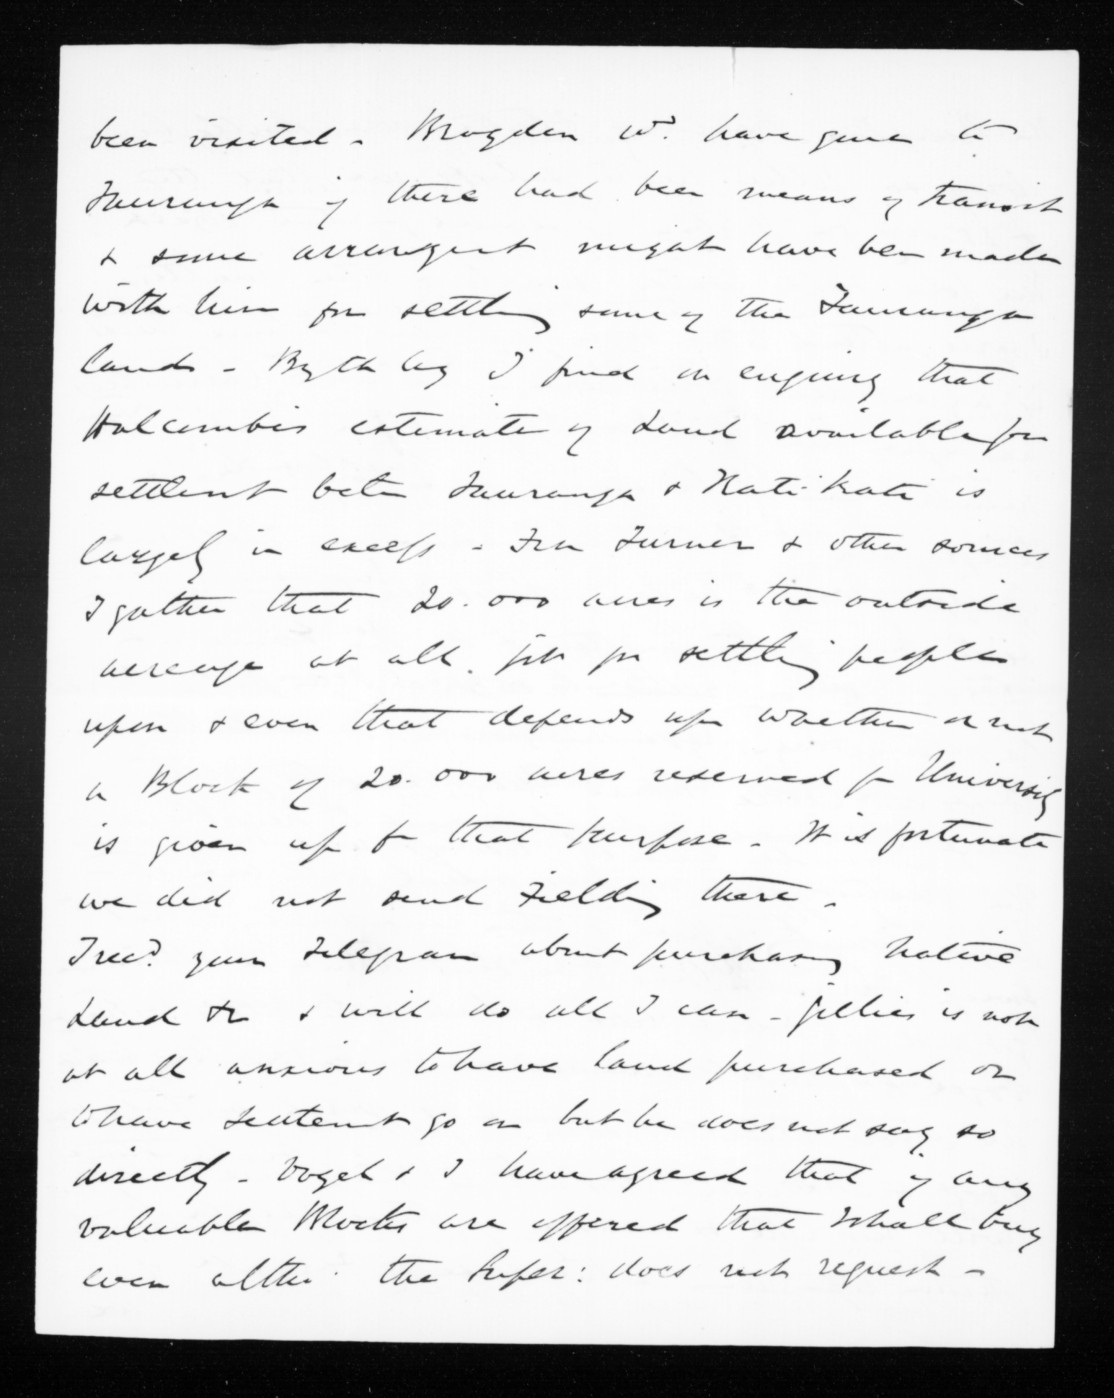 been visited - Brogden wd. have gone to
Tauranga if there had been means of transit
& some arrangent might have been made
with him for settling some of the Tauranga
lands - By th by I find on enquiry that
Halcombe's estimate of Land available for
settlent betn Tauranga & Kati-Kati is
largely in excess - From Turner & other sources
I gather that 20.000 acres is the outside
acreage at all fit for settling people
upon & even that depends upon whether or not
a Block of 20.000 acres reserved for University
is given up for that purpose - It is fortunate
we did not send Fielding there -
I recd. your telegram about purchasing native
Land &c & will do all I can - Gillies is not
at all anxious to have land purchased or
to have settlement go on but he does not say so
directly - Vogel & I have agreed that if any
valuable Blocks are offered that I shall buy
even altho' the Super: does not request -